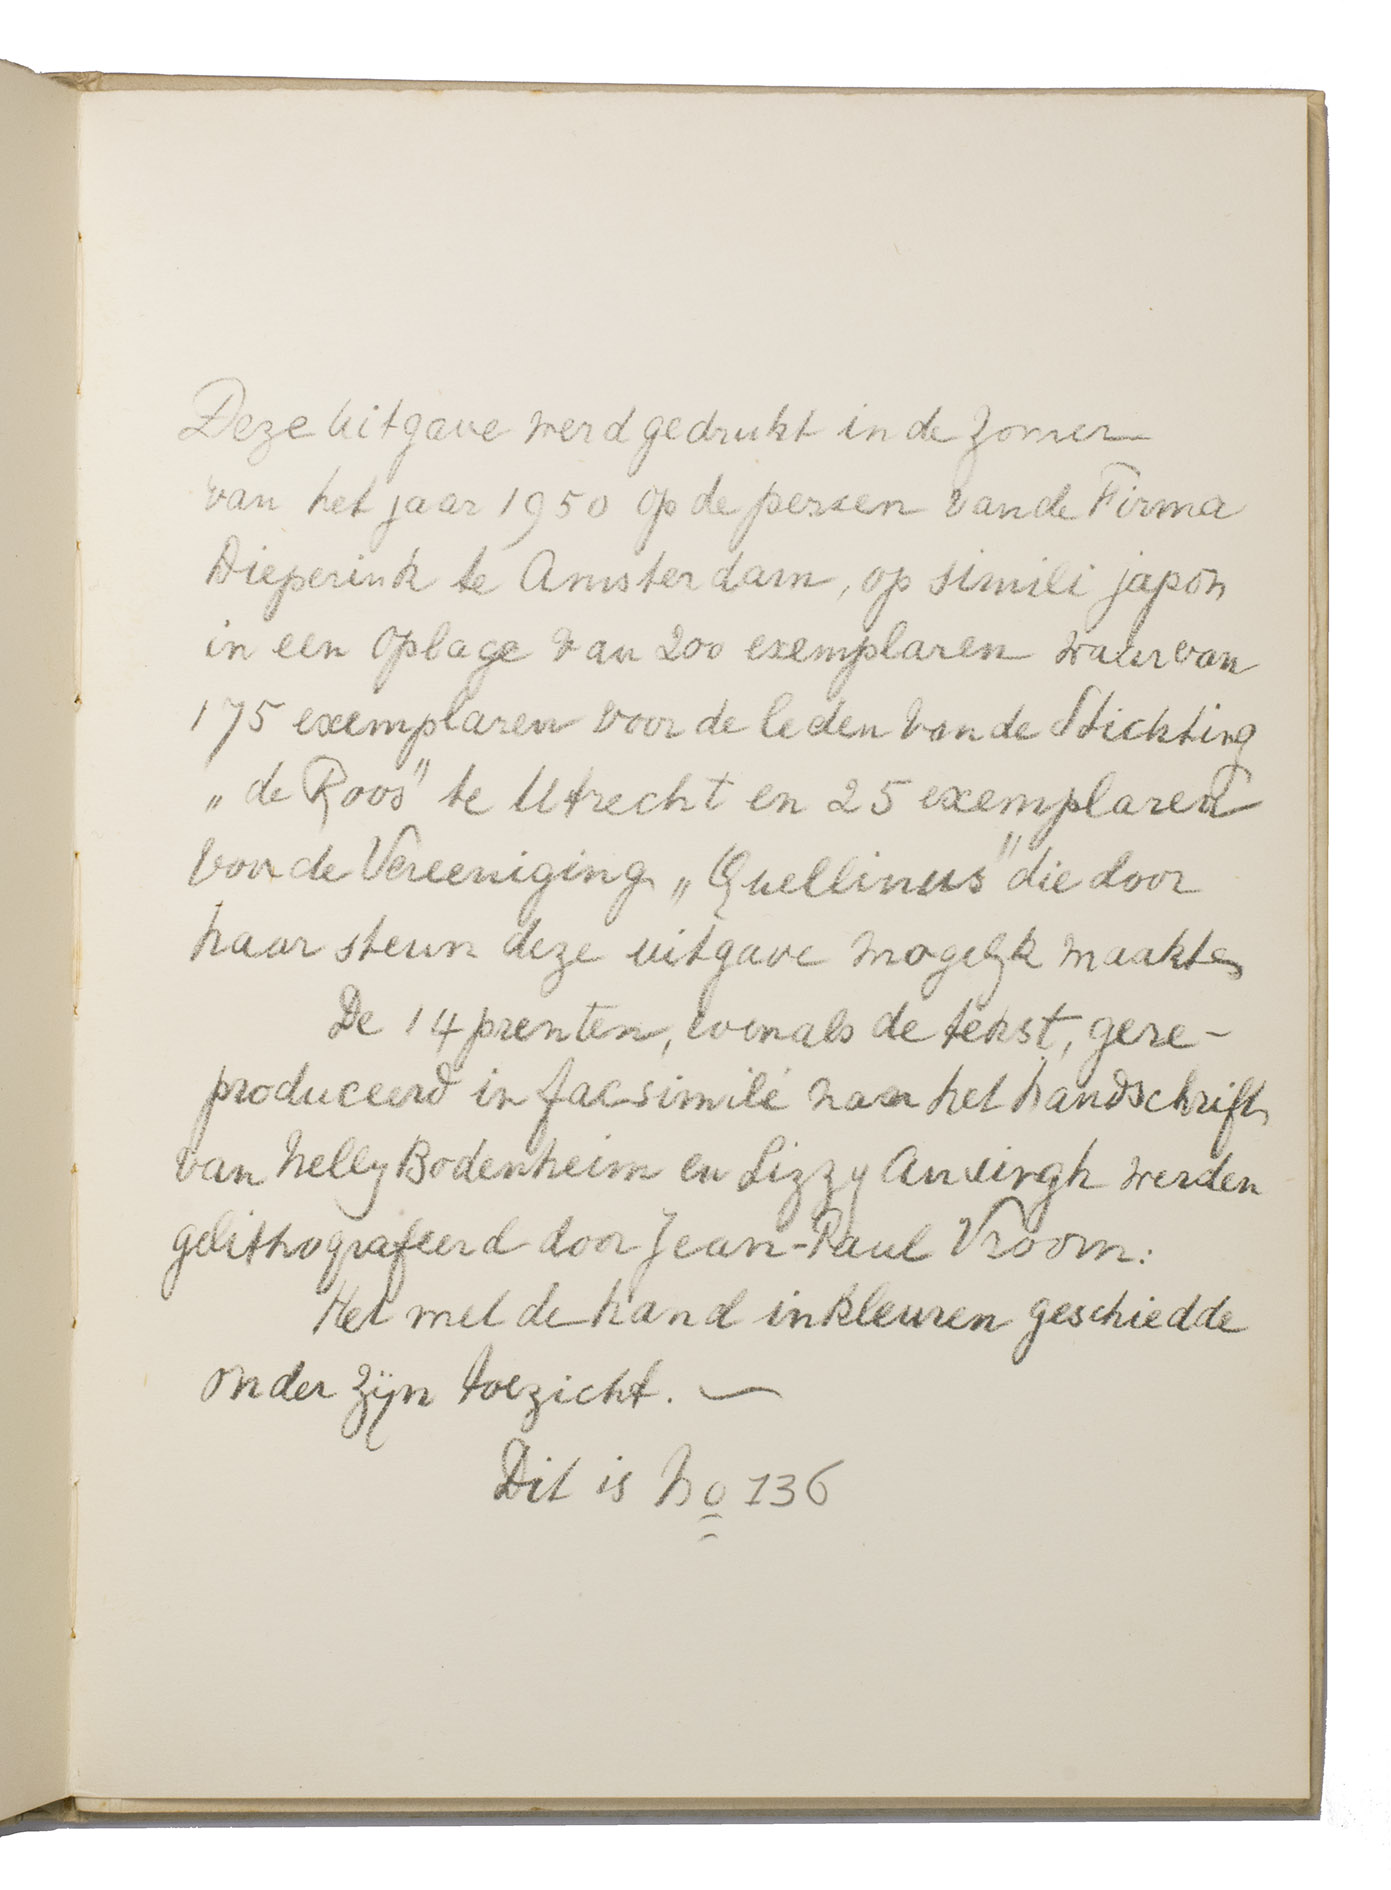 Deze Uitgave werd gedrukt in de Zomer
van het jaar 1950 op de persen van de Firma
Dieperink te Amsterdam, op simili japon
in een oplage van 200 exemplaren waarvan
175 exemplaren voor de leden van de Stichting
„de Roos" te Utrecht en 25 exemplaren
voor de Vereeniging „Quellinus" die door
haar steun deze uitgave mogelijk maakte
De 14 prenten, evenals de tekst, gere-
produceerd in facsimilé naar het handschrift
van Nelly Bodenheim en Lizzy Ansingh werden
gelithografeerd door Jean-Paul Vroom.
Het met de hand inkleuren geschiedde
onder zijn toezicht. —
Dit is No 136